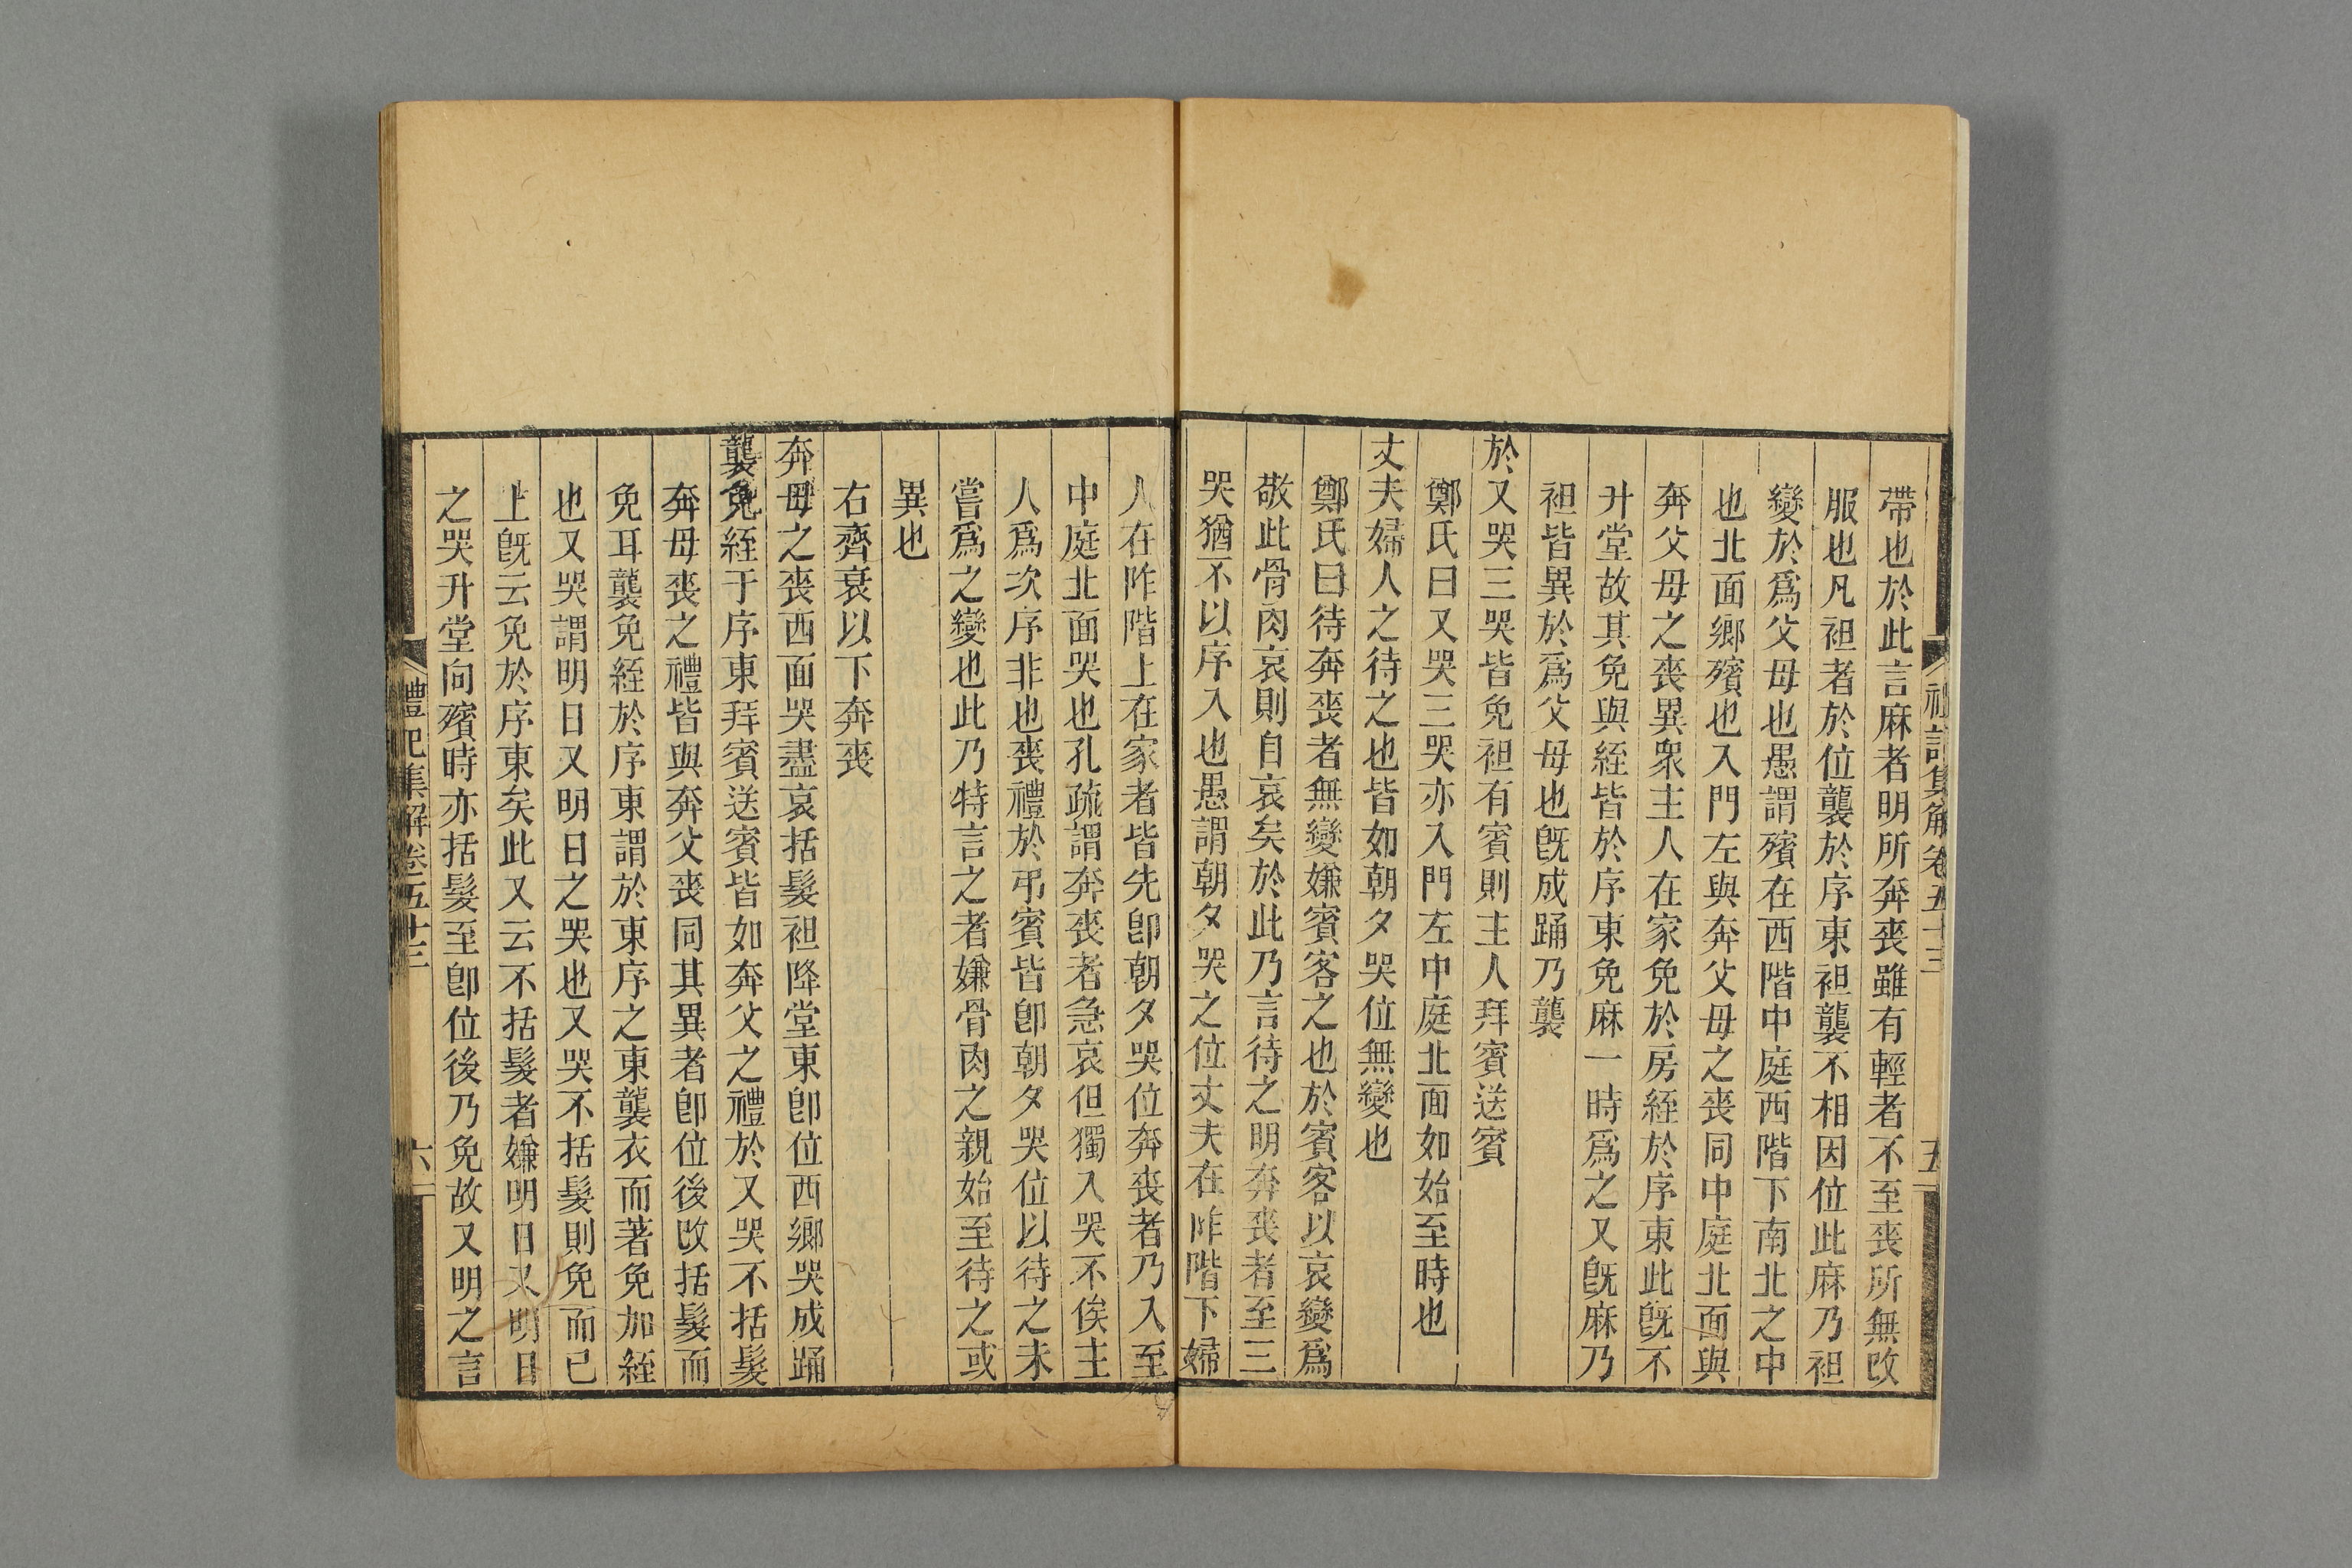 禮記集解卷五十三
五
帶也於此言麻者明所奔喪雖有輕者不至喪所無改
服也凡袒者於位襲於序東袒襲不相因位此麻乃袒
變於爲父母也愚謂殯在西階中庭西階下南北之中
也北面鄉殯也入門左與奔父母之喪同中庭北面與
奔父母之喪異衆主人在家免於房絰於序東此旣不
升堂故其免與絰皆於序東免麻一時爲之又旣麻乃
袒皆異於爲父母也旣成踊乃襲
於又哭三哭皆免袒有賓則主人拜賓送賓
鄭氏曰又哭三哭亦入門左中庭北面如始至時也
丈夫婦人之待之也皆如朝夕哭位無變也
鄭氏曰待奔喪者無變嫌賓客之也於賓客以哀變爲
敬此骨肉哀則自哀矣於此乃言待之明奔喪者至三
哭猶不以序入也愚謂朝夕哭之位丈夫在阼階下婦
人在阼階上在家者皆先卽朝夕哭位奔喪者乃入至
中庭北面哭也孔疏謂奔喪者急哀但獨入哭不俟主
人爲次序非也喪禮於弔賓皆卽朝夕哭位以待之未
嘗爲之變也此乃特言之者嫌骨肉之親始至待之或
異也
右齊衰以下奔喪
奔母之喪西面哭盡哀括髮袒降堂東卽位西鄉哭成踊
襲免絰于序東拜賓送賓皆如奔父之禮於又哭不括髮
奔母喪之禮皆與奔父喪同其異者卽位後改括髮而
免耳襲免絰於序東謂於東序之東襲衣而著免加絰
也又哭謂明日又明日之哭也又哭不括髮則免而已
上旣云免於序東矣此又云不括髮者嫌明日又明日
之哭升堂向殯時亦括髮至卽位後乃免故又明之言
禮記集解卷五十三
六